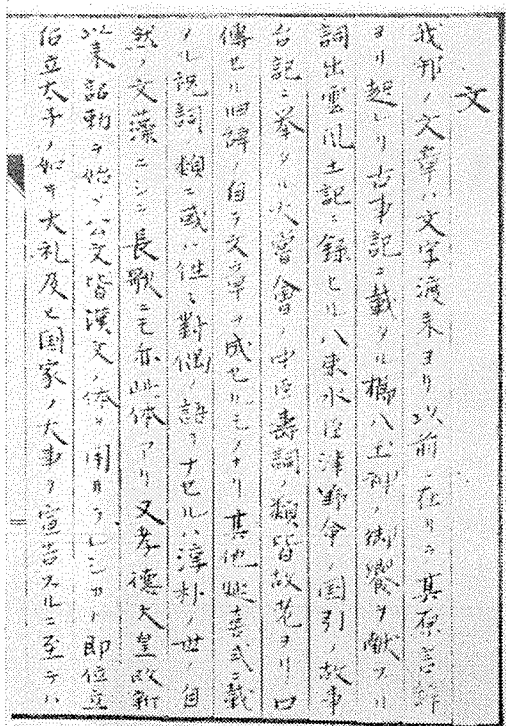 文
我邦ノ文章ハ文字渡来ヨリ以前ニ在リテ其原言辞
ヨリ起レリ古事記ニ載タル櫛八玉神ノ御饗ヲ献ツル
詞出雲風土記ニ録セル八束水臣津野命ノ国引ノ故事
台記ニ挙タル大嘗会ノ中臣寿詞ノ類皆故老ヨリ口
傳セル旧辞自ラ文章ヲ成セルモノナリ其他延喜式ニ載
タル祝詞ノ類ニ或ハ往々對偶ノ語ヲナセルハ淳朴ノ世ノ自
然ノ文藻ニシテ長歌ニモ亦此体アリ又孝徳天皇改新
以来詔勅ヲ始メ公文皆漢文ノ体ヲ用ヰラレシカトノ即位立
后立太子ノ如キ大礼及ヒ国家ノ大事ヲ宣告スルニ至テハ